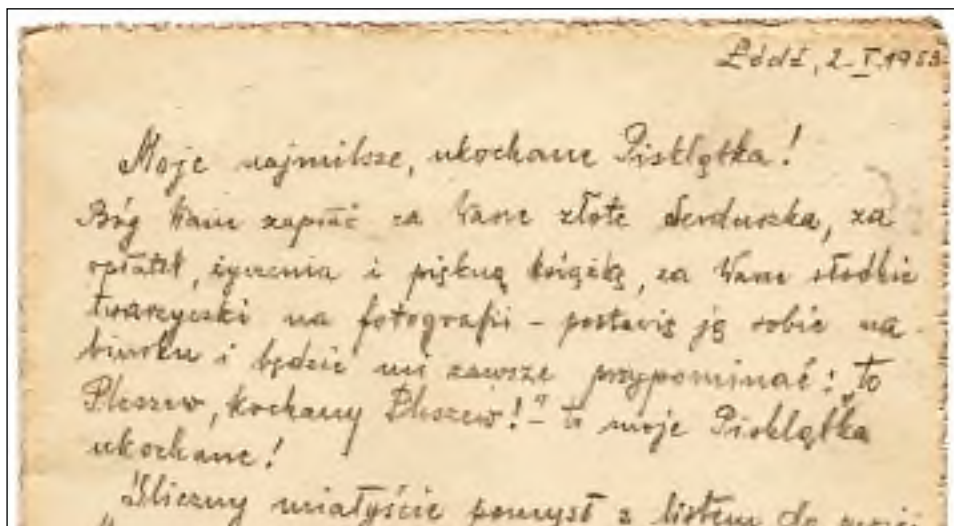 Łódź, 2.I.1953
Moje najmilsze, ukochane Pisklątka!
Bóg Wam zapłać za Wasze złote Serduszka, za
opłatek, życzenia i piękną książkę, za Wasze słodkie
twarzyczki na fotografii – postawię ją sobie na
biurku i będzie mi zawsze przypominać: „to
Pleszew, kochany Pleszew!" – to moje Pisklątka
ukochane!
Śliczny miałyście pomysł z listem do